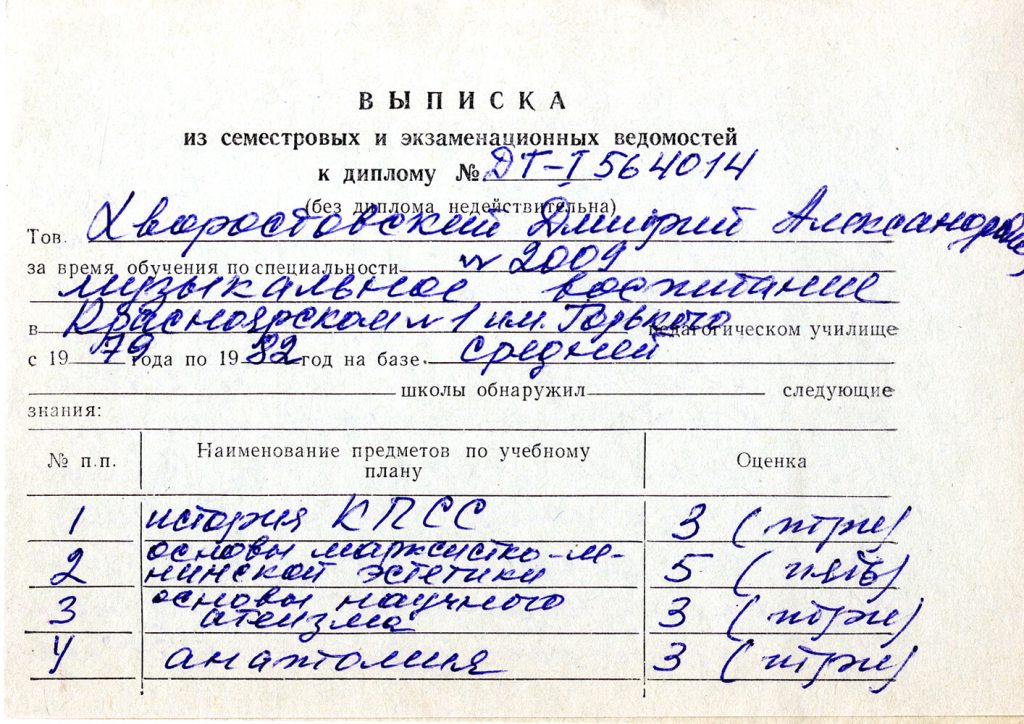 ВЫПИСКА
из семестровых и экзаменационных ведомостей
к диплому № ДТ-I 564014
(без диплома недействительна)
Тов. Хворостовский Дмитрий Александрович
за время обучения по специальности № 2009
музыкальное воспитание
в Красноярском № 1 им. Горького педагогическом училище
с 19 79 года по 19 82 год на базе средней
школы обнаружил следующие
знания:
№ п.п. Наименование предметов по учебному плану Оценка
1 история КПСС 3 (три)
2 основы марксистко-ле-
нинской эстетики 5 (пять)
3 основы научного
атеизма 3 (три)
4 анатомия 3 (три)